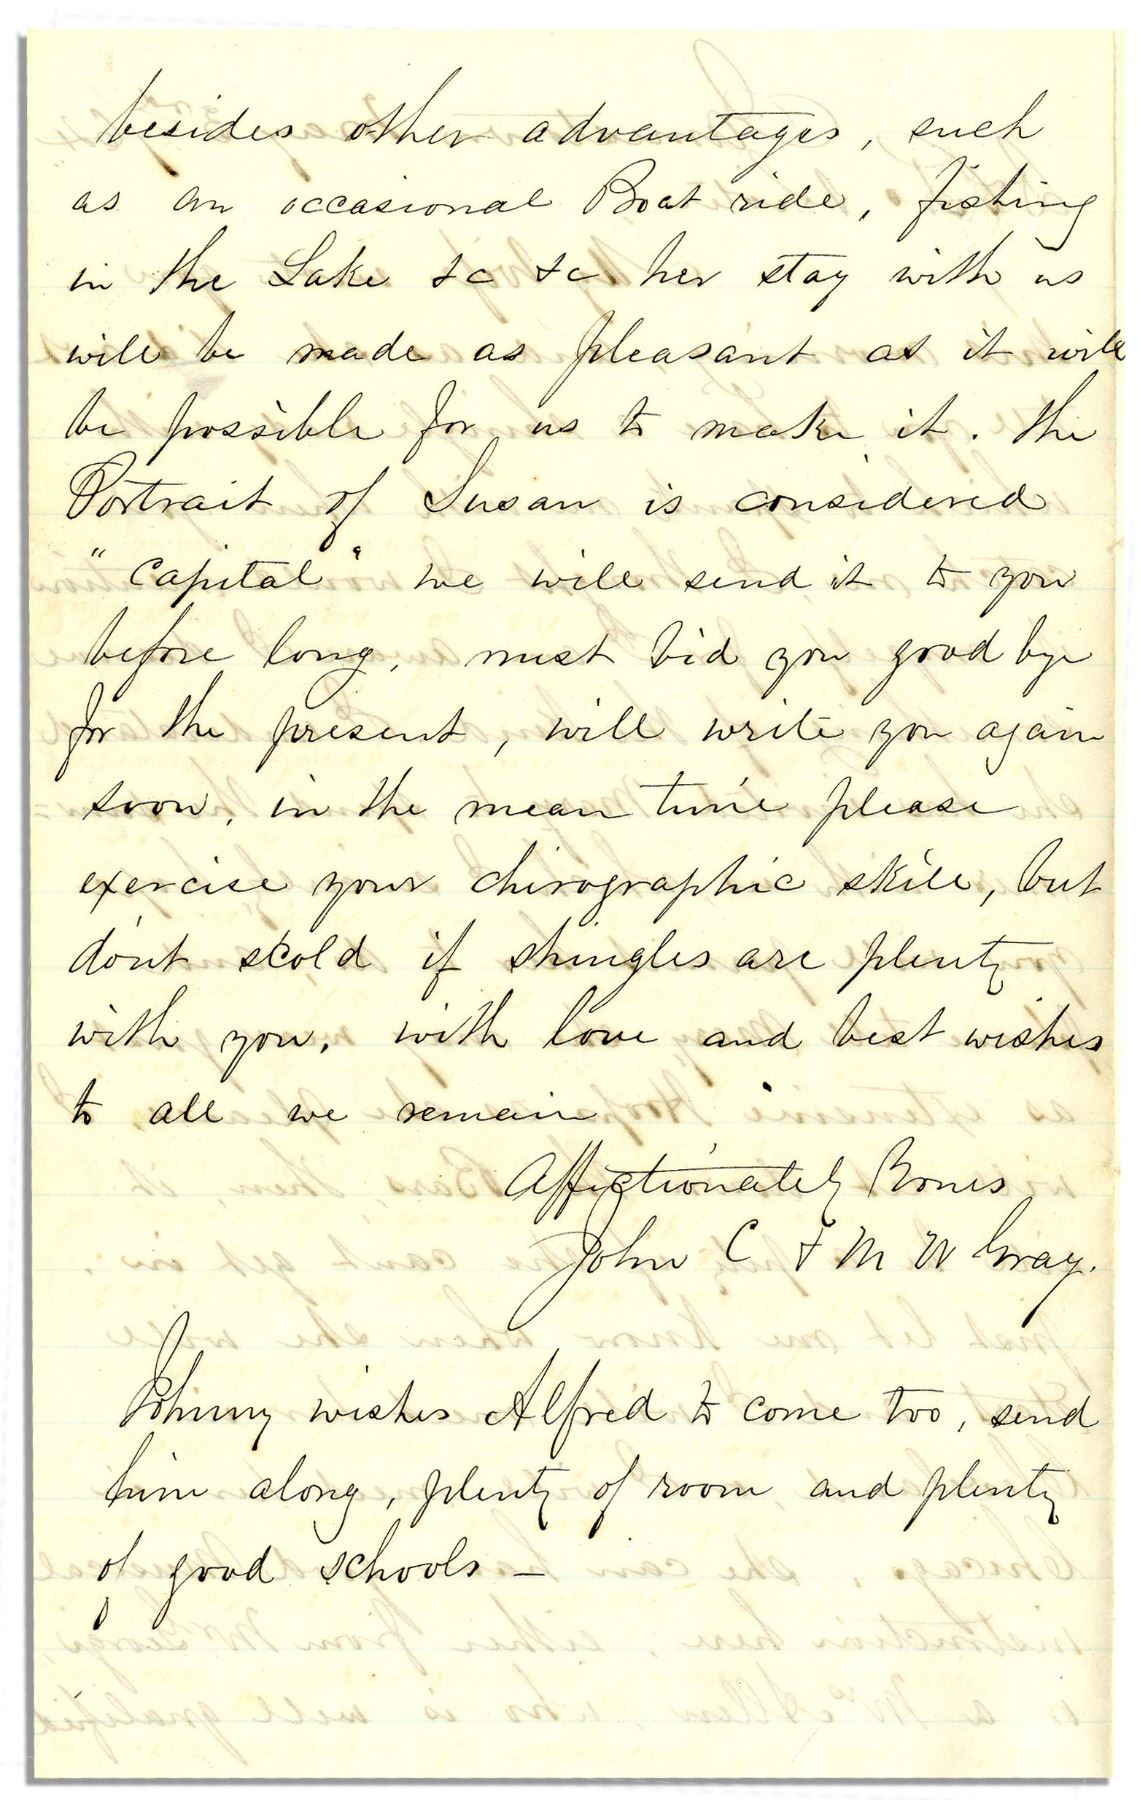 besides other advantages, such
as an occasional Boat ride, fishing
in the Lake &c &c her stay with us
will be made as pleasant as it will
be possible for us to make it. The
Portrait of Susan is considered
"Capital" we will send it to you
before long, must bid you good bye
for the present, will write you again
soon, in the mean time please
exercise your chirographic skill, but
don't scold if shingles are plenty
with you. with love and best wishes
to all we remain
Affectionately Yours
John C & M W Gray.
Johnny wishes Alfred to come too, send
him along, plenty of room and plenty
of good schools —